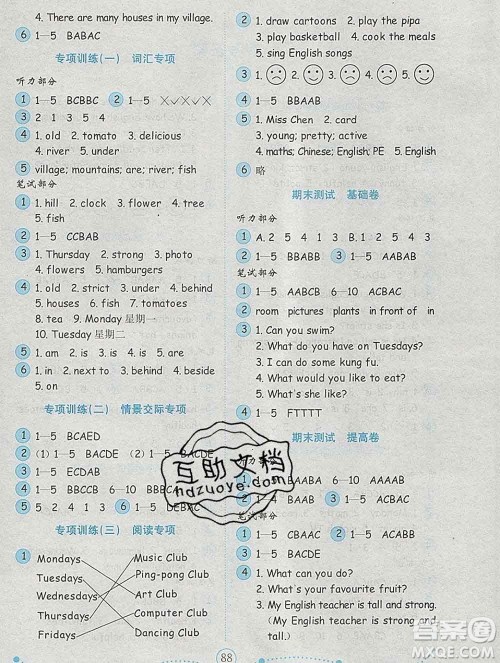 4. There are many houses in my village.
6 1—5 BABAC
专项训练(一) 词汇专项
听力部分
1 1—5 BCBBC 2 1—5 ××✓✓×
3 2 1 3 5 4
4 1. old 2. tomato 3. delicious
4. river 5. under
5 village; mountains; are; river; fish
笔试部分
1 1. hill 2. clock 3. flower 4. tree
5. fish
2 1—5 CCBAB
3 1. Thursday 2. strong 3. photo
4. flowers 5. hamburgers
4 1. old 2. first 3. under 4. behind
5. houses 6. fish 7. tomatoes
8. tea 9. Monday 星期一
10. Tuesday 星期二
5 1. am 2. is 3. is 4. are 5. is
6 1. on 2. in 3. under 4. beside
5. behind
专项训练(二) 情景交际专项
1 1—5 BCAED
2 (1) 1—5 BACDE (2) 1—5 BACDE
3 1—5 ECDAB
4 1—5 BBCCB 6—10 ABCBB
5 1 5 2 4 3 6 1—5 DEBAC
专项训练(三) 阅读专项
1 Mondays Music Club
Tuesdays Ping-pong Club
Wednesdays Art Club
Thursdays Computer Club
Fridays Dancing Club
2 1. draw cartoons 2. play the pipa
3. play basketball 4. cook meals
5. sing English songs
3 1 2 3 4 5
4 1—5 BBAAB
5 1. Miss Chen 2. card
3. young; pretty; active
4. maths; Chinese; English; PE 5. English
6 略
期末测试 基础卷
听力部分
1 A. 2 5 4 1 3 B. 1 2 5 4 3
2 1—5 BBABB 3 1—5 ABBAA
笔试部分
1 1—5 AABCB 6—10 ACBAC
2 room pictures plants in front of in
3 1. Can you swim?
2. What do you have on Tuesdays?
3. I can do some kung fu.
4. What would you like to eat?
5. What's she like?
4 1—5 FTTTT
期末测试 提高卷
听力部分
1 1—5 BAABA 6—10 AAAAA
2 1 4 2 5 3 3 1—5 BAABB
笔试部分
1 1—5 CBAAC 6—10 ACBAC
2 1—5 ACABB
3 1—5 BACDE
4 1. What can you do?
2. What's your favourite fruit?
3. My English teacher is tall and strong.
(My English teacher is strong and
tall.)
88
互助文档
hdzuoye.com
答案圈
MXQE.COM